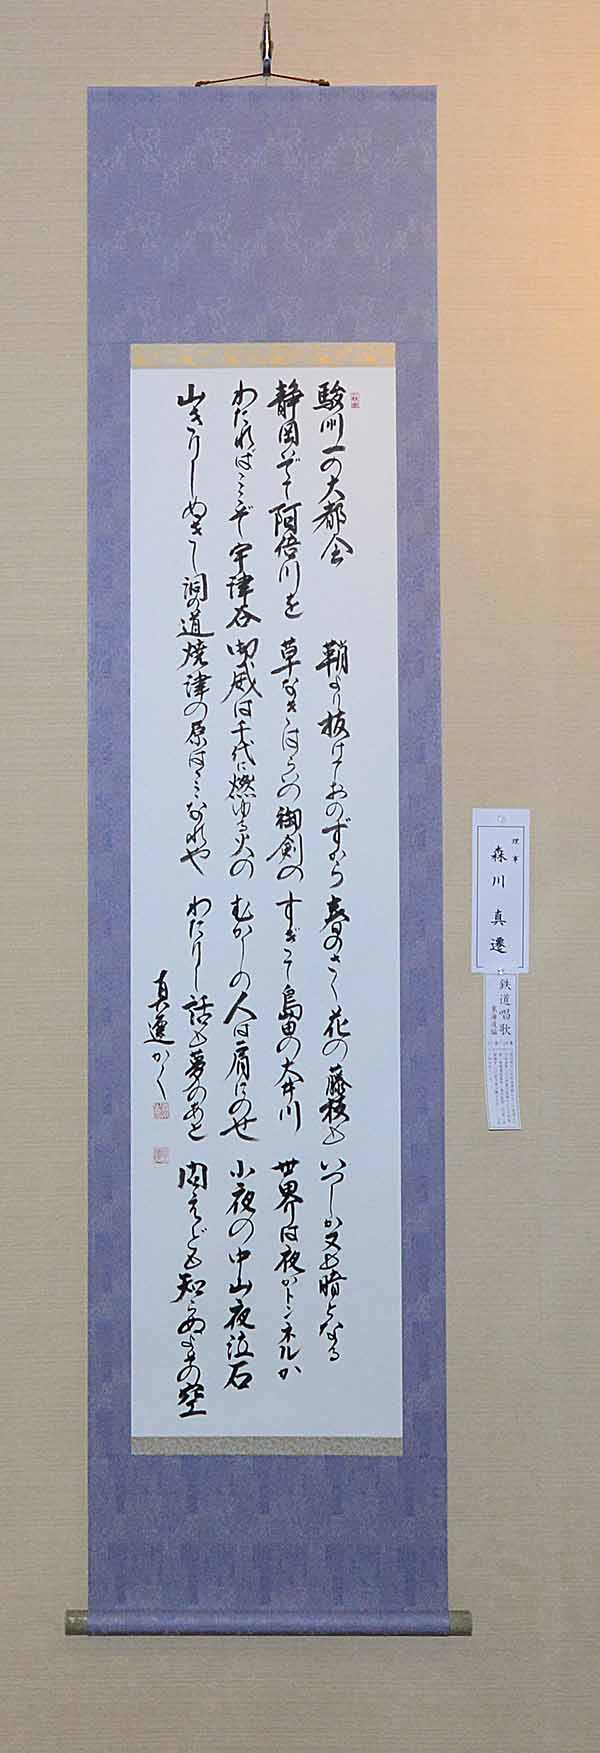 駿州一の大都会
静岡いでて阿倍川を
わたればここぞ宇津谷
山きりしぬきし洞の道
鞘より抜けておのずから
草なぎはらの御剣の
御威は千代に燃ゆる火の
焼津の原はここなれや
春のさく花の藤枝も
すぎて島田の大井川
むかしの人は肩にのせ
わたりし話も夢のあと
いつしか又も暗となる
世界は夜かトンネルか
小夜の中山夜泣石
問えども知らぬよその空
真遷かく
理事
森川真遷
鉄道唱歌
東海道編